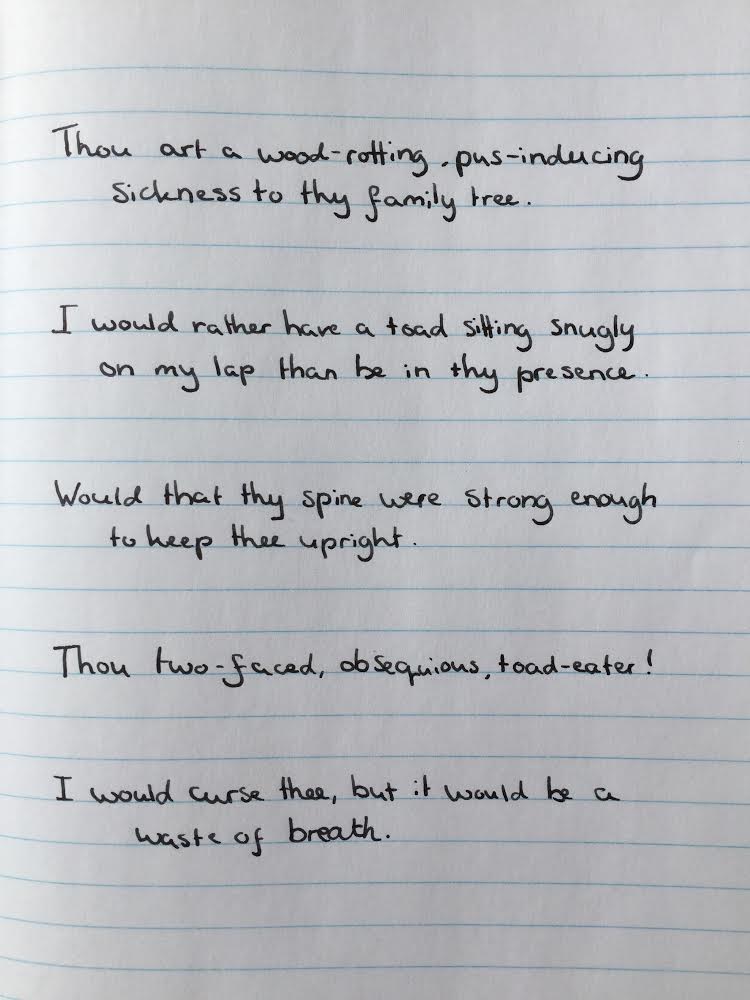 Thou art a wood-rotting, pus-inducing
Sickness to thy family tree.
I would rather have a toad sitting snugly
on my lap than be in thy presence.
Would that thy spine were strong enough
to keep thee upright.
Thou two-faced, obsequious, toad-eater!
I would curse thee, but it would be a
waste of breath.